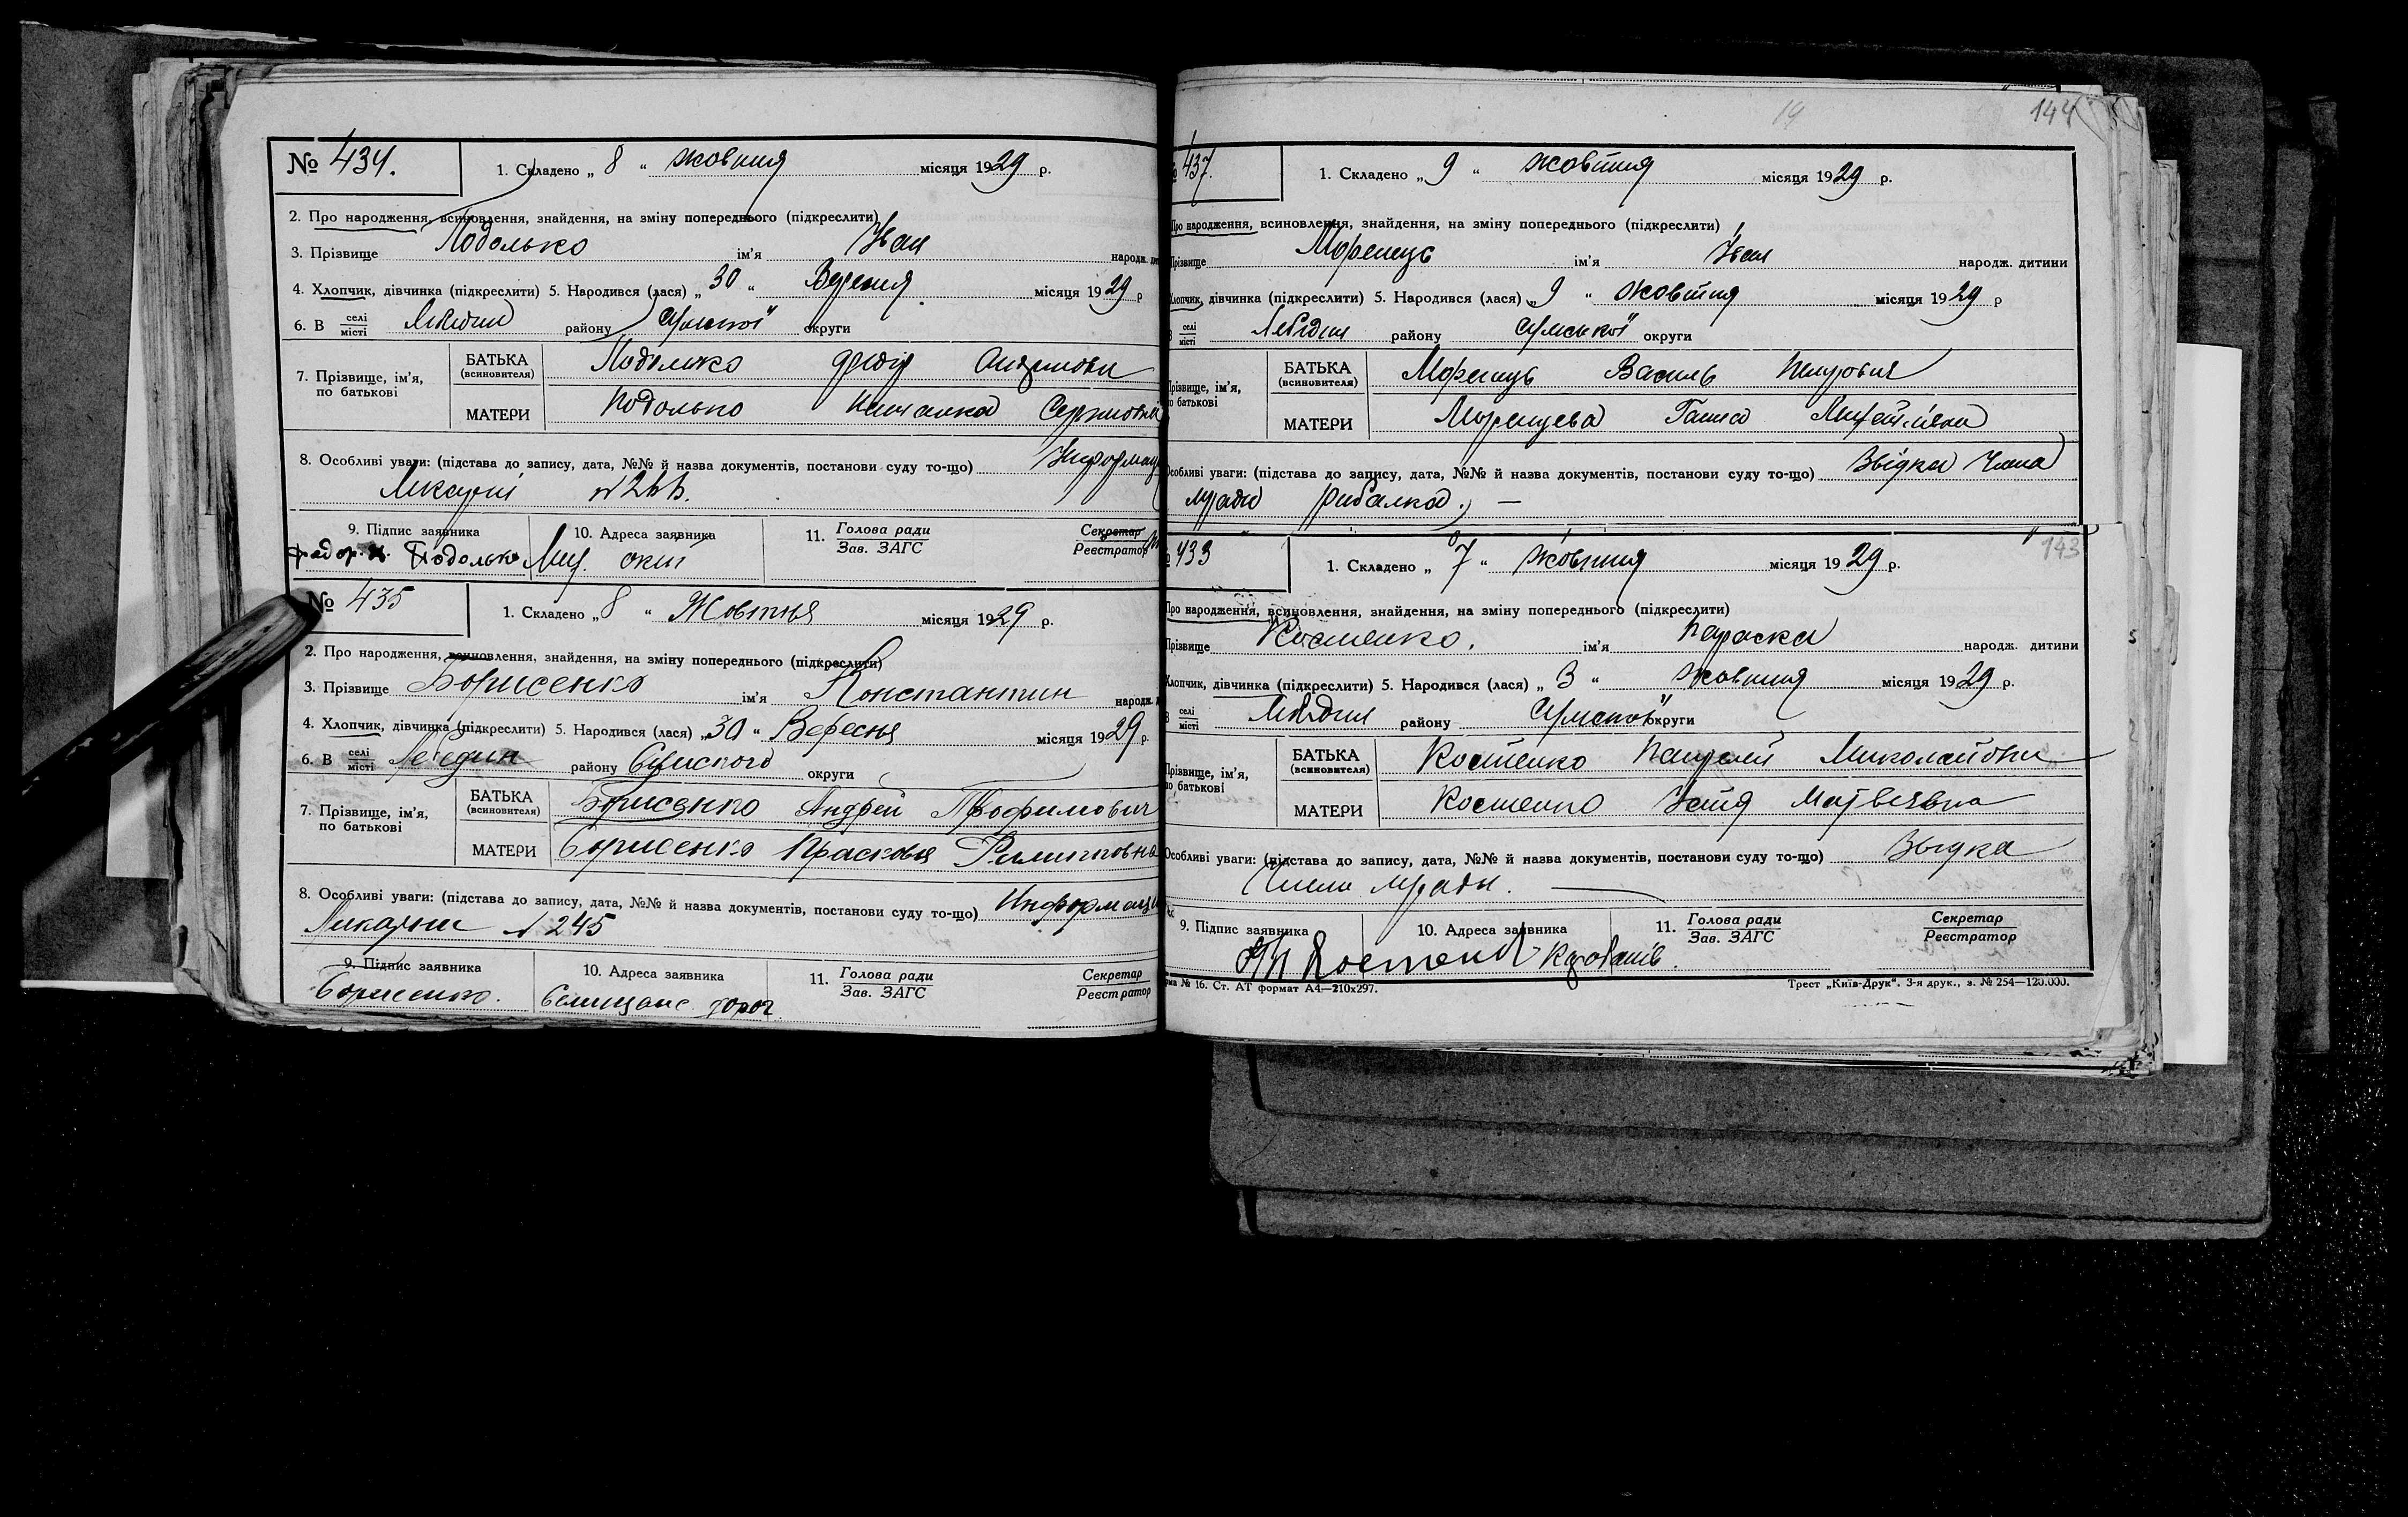 № 434. 1. Складено „ 8 “ жовтня місяця 1929 р.
2. Про народження, всиновлення, знайдення, на зміну попереднього (підкреслити)
3. Прізвище Подолько ім'я Іван народж.
4. Хлопчик, дівчинка (підкреслити) 5. Народився (лася) „ 30 “ Вересня місяця 1929 р
6. В селі/місті Лебедин району Сумської округи
7. Прізвище, ім'я, по батькові
БАТЬКА (всиновителя) Подолько
МАТЕРИ Подолько
8. Особливі уваги: (підстава до запису, дата, №№ й назва документів, постанови суду то-що)
Лікарні
9. Підпис заявника 10. Адреса заявника 11. Голова ради Зав. ЗАГС Секретар Реєстратор
Подолько
№ 435 1. Складено „ 8 “ Жовтня місяця 1929 р.
2. Про народження, всиновлення, знайдення, на зміну попереднього (підкреслити)
3. Прізвище Борисенко ім'я Константин народж.
4. Хлопчик, дівчинка (підкреслити) 5. Народився (лася) „ 30 “ Вересня місяця 1929 р.
6. В селі/місті Лебедин району Сумского округи
7. Прізвище, ім'я, по батькові
БАТЬКА (всиновителя) Борисенко Андрей Трофимович
МАТЕРИ Борисенко Прасковья Филипповна
8. Особливі уваги: (підстава до запису, дата, №№ й назва документів, постанови суду то-що)
№ 245
9. Підпис заявника 10. Адреса заявника 11. Голова ради Зав. ЗАГС Секретар Реєстратор
Борисенко.
144
437. 1. Складено „ 9 “ жовтня місяця 1929 р.
Про народження, всиновлення, знайдення, на зміну попереднього (підкреслити)
Прізвище Моренець ім'я Іван народж. дитини
Хлопчик, дівчинка (підкреслити) 5. Народився (лася) „ 9 “ жовтня місяця 1929 р
селі/місті Лебедин району Сумської округи
Прізвище, ім'я, по батькові
БАТЬКА (всиновителя) Моренець Василь Петрович
МАТЕРИ Моренцева Ганна
Особливі уваги: (підстава до запису, дата, №№ й назва документів, постанови суду то-що) Звідка Члена
Рибалка. —
433 1. Складено „ 7 “ жовтня місяця 1929 р.
143
Про народження, всиновлення, знайдення, на зміну попереднього (підкреслити)
Прізвище Костенко. ім'я Параска народж. дитини
Хлопчик, дівчинка (підкреслити) 5. Народився (лася) „ 3 “ жовтня місяця 1929 р.
селі/місті Лебедин району Сумської округи
Прізвище, ім'я, по батькові
БАТЬКА (всиновителя) Костенко Миколайович
МАТЕРИ Костенко Матвеевна
Особливі уваги: (підстава до запису, дата, №№ й назва документів, постанови суду то-що) Звідка
9. Підпис заявника 10. Адреса заявника 11. Голова ради Зав. ЗАГС Секретар Реєстратор
№ 16. Ст. АТ формат А4—210х297. Трест „Київ-Друк“. 3-я друк., з. № 254—120.000.